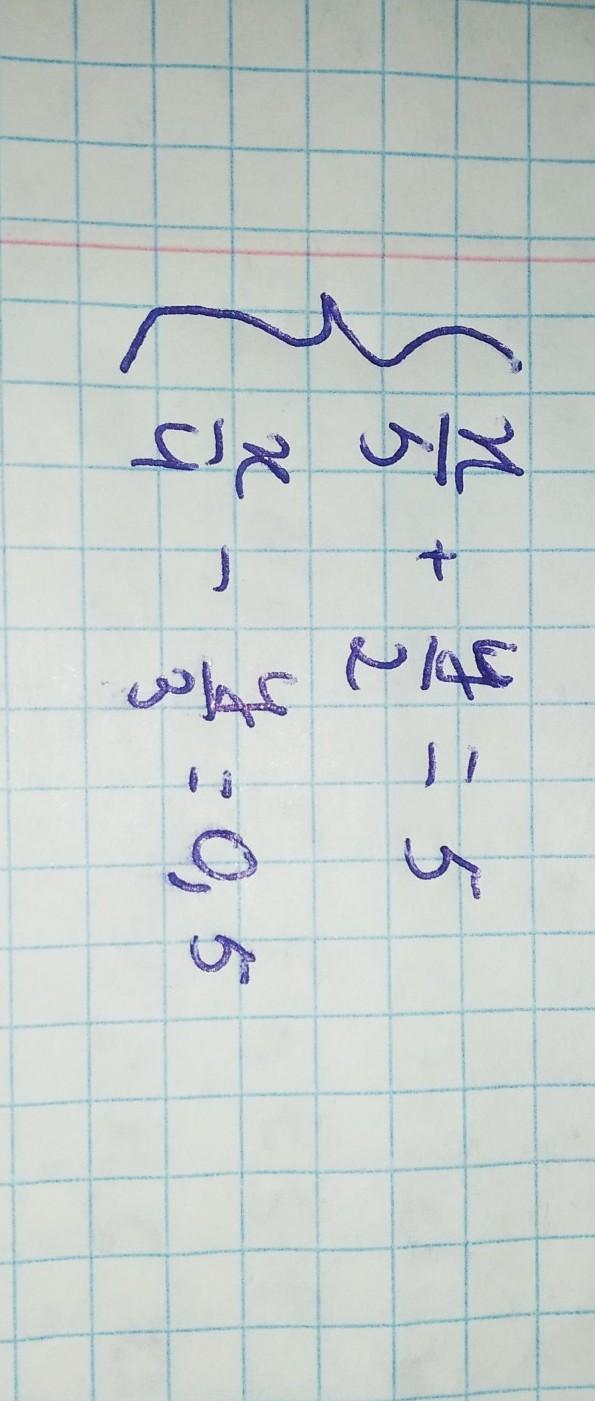 x/5 + y/2 = 5
x/4 - y/3 = 0,5